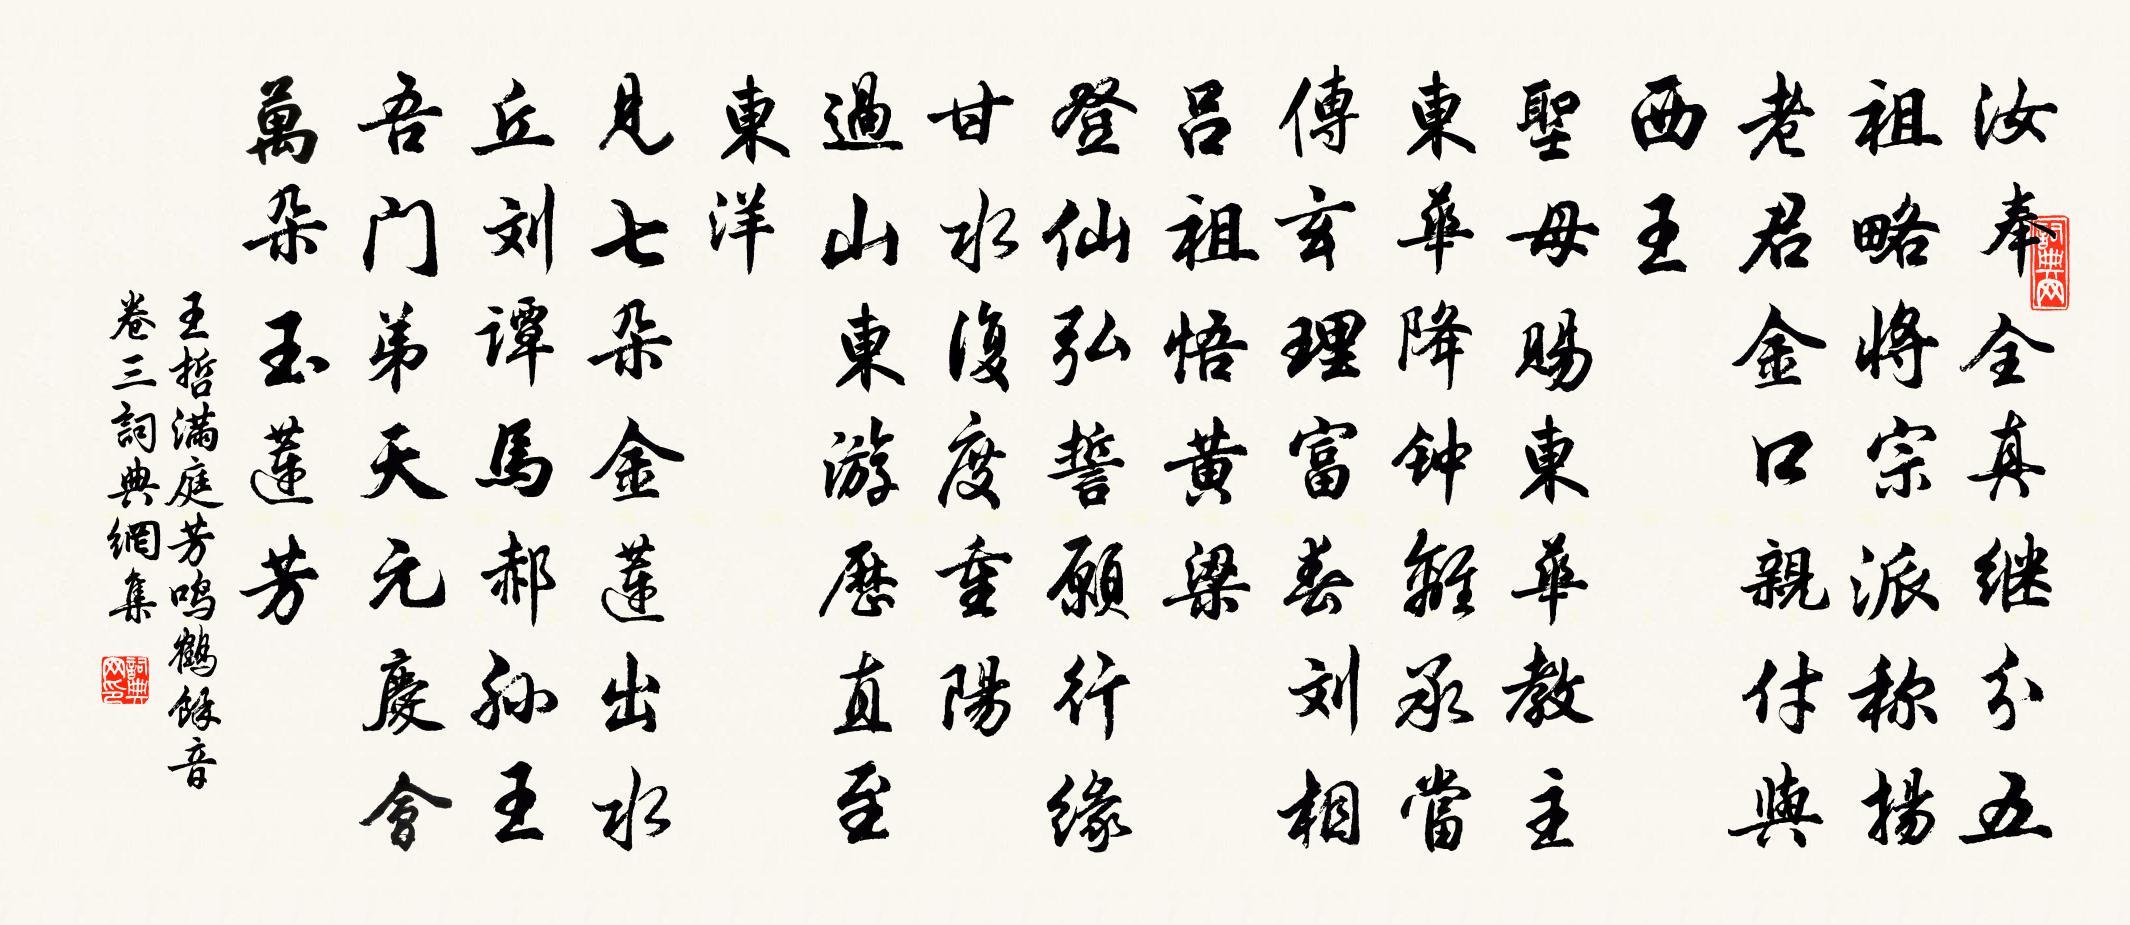 汝奉全真继分五
祖略将宗派称揚
老君金口親付與
西王
聖母賜東華教主
東華降钟離承當
傳玄理富春刘相
吕祖悟黄粱
登仙弘誓願行缘
甘水復度重陽
過山東游歷直至
東洋
見七朵金蓮出水
丘刘谭馬郝孙王
吾门弟天元慶會
萬朵玉蓮芳
王哲满庭芳鸣鶴餘音
卷三詞典網集
詞典网
詞典网印